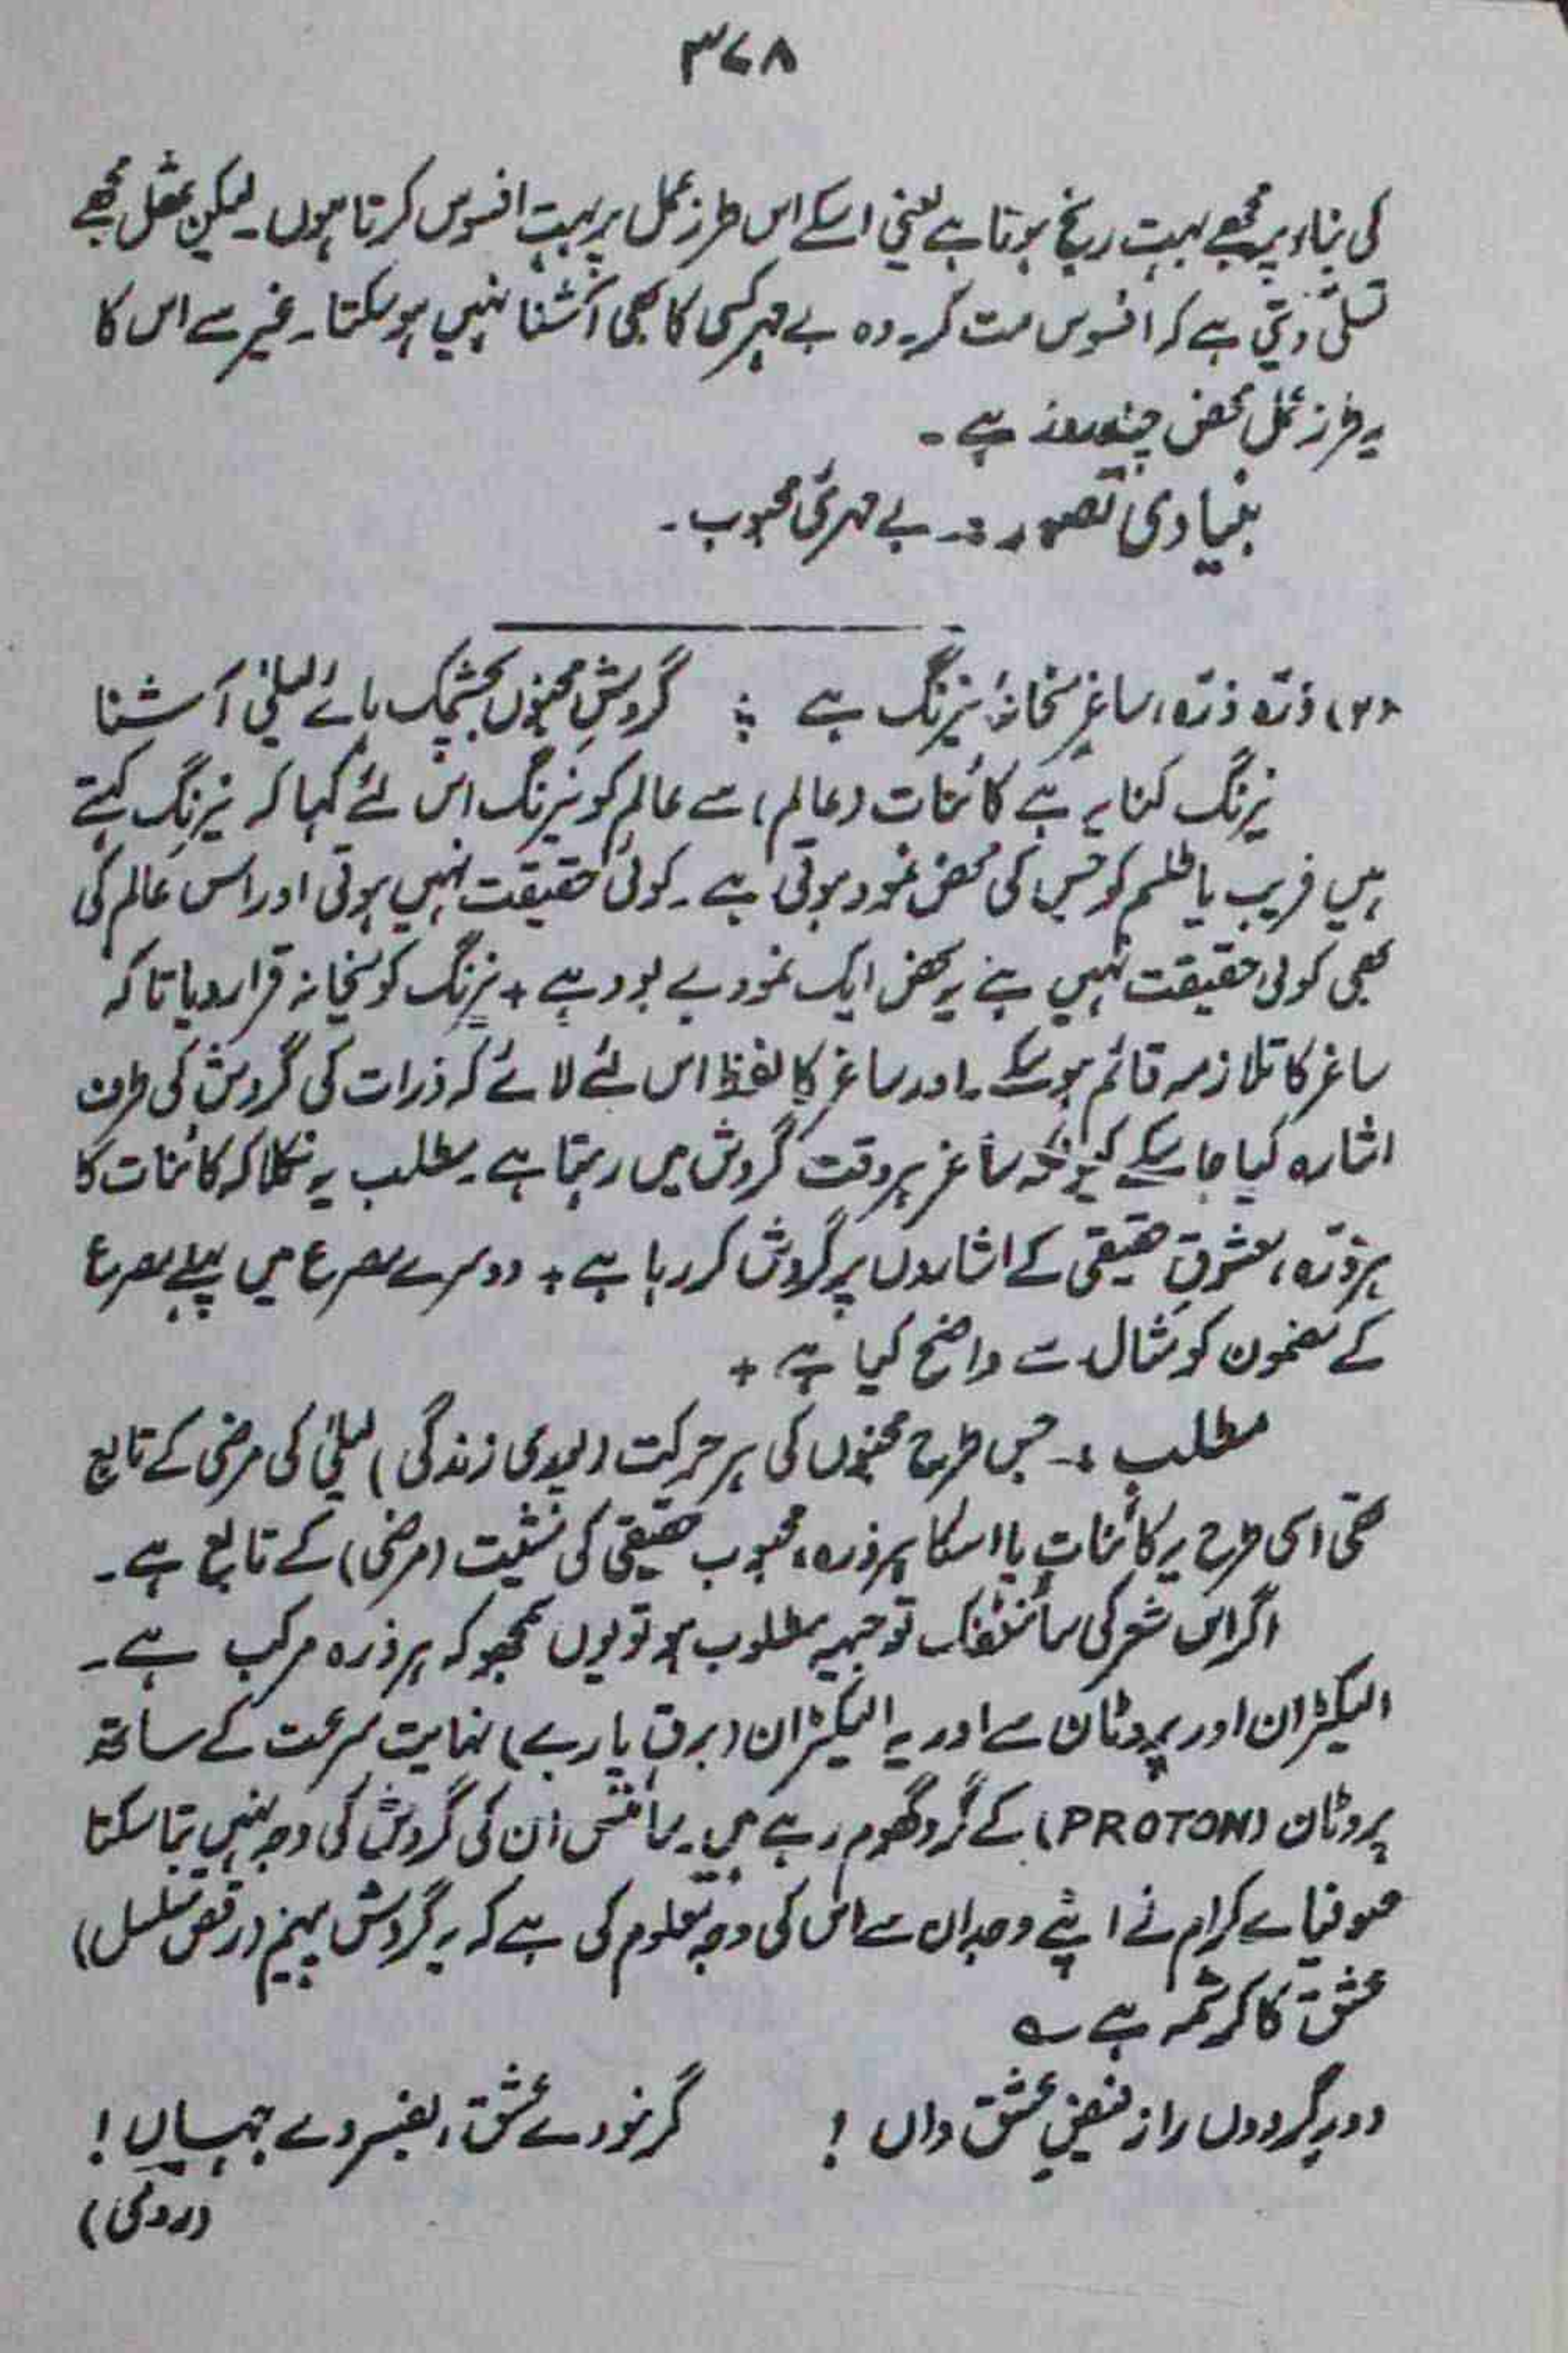 ۳۷۸
کی بناء پر مجھے بہت رنج ہوتا ہے یعنی اسکے اس طرز عمل پر بہت افسوس کرتا ہوں۔ لیکن عقل مجھے
تسلّی دیتی ہے کہ افسوس مت کر۔ وہ بے مہر کسی کا بھی آشنا نہیں ہو سکتا۔ غیر سے اس کا
یہ طرز عمل محض چند روزہ ہے۔
بنیادی تصور :۔ بے مہرئ محبوب۔
(۲) ذرّہ ذرّہ، ساغرِ میخانۂ نیرنگ ہے ؛ گردشِ مجنوں بچشمک ہائے لیلیٰ آشنا
نیرنگ کنایہ ہے کائنات (عالم) سے عالم کو نیرنگ اس لئے کہا کہ نیرنگ کہتے
ہیں فریب یا طلسم کو جس کی محض نمود ہوتی ہے۔ کوئی حقیقت نہیں ہوتی اور اس عالم کی
بھی کوئی حقیقت نہیں ہے یہ محض ایک نمود بے بود ہے + نیرنگ کو میخانہ قرار دیا تا کہ
ساغر کا تلازمہ قائم ہو سکے۔ اور ساغر کا لفظ اس لئے لائے کہ ذرات کی گردش کی طرف
اشارہ کیا جا سکے کیونکہ ساغر ہر وقت گردش میں رہتا ہے۔ مطلب یہ نکلا کہ کائنات کا
ہر ذرّہ، معشوقِ حقیقی کے اشاروں پر گردش کر رہا ہے + دوسرے مصرع میں پہلے مصرع
کے مضمون کو مثال سے واضح کیا ہے +
مطلب :۔ جس طرح مجنوں کی ہر حرکت (پوری زندگی) لیلیٰ کی مرضی کے تابع
تھی اسی طرح یہ کائنات یا اسکا ہر ذرہ، محبوب حقیقی کی مشیت (مرضی) کے تابع ہے۔
اگر اس شعر کی سائنٹفک توجیہہ مطلوب ہو تو یوں سمجھو کہ ہر ذرہ مرکب ہے۔
الیکٹران اور پروٹان سے اور یہ الیکٹران (برق پارے) نہایت سرعت کے ساتھ
پروٹان (PROTON) کے گرد گھوم رہے ہیں۔ سائنس ان کی گردش کی وجہ نہیں بتا سکتا
صوفیائے کرام نے اپنے وجدان سے اس کی وجہ معلوم کی ہے کہ یہ گردش پیہم (رقص مسلسل)
عشق کا کرشمہ ہے ؎
دورِ گردوں را ز فیضِ عشق داں ! گر نبودے عشق، بفسردے جہاں !
(رومی)